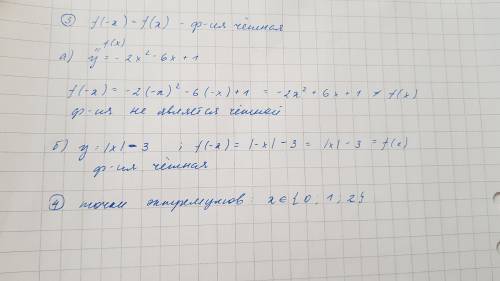 ③ f(-x) = f(x) - ф-ия чётная
f(x)
а) y = -2x² - 6x + 1
f(-x) = -2(-x)² - 6(-x) + 1 = -2x² + 6x + 1 ≠ f(x)
ф-ия не является чётной
б) y = |x| - 3 ; f(-x) = |-x| - 3 = |x| - 3 = f(x)
ф-ия чётная
④ точки экстремумов: x ∈ {0, 1, 2}